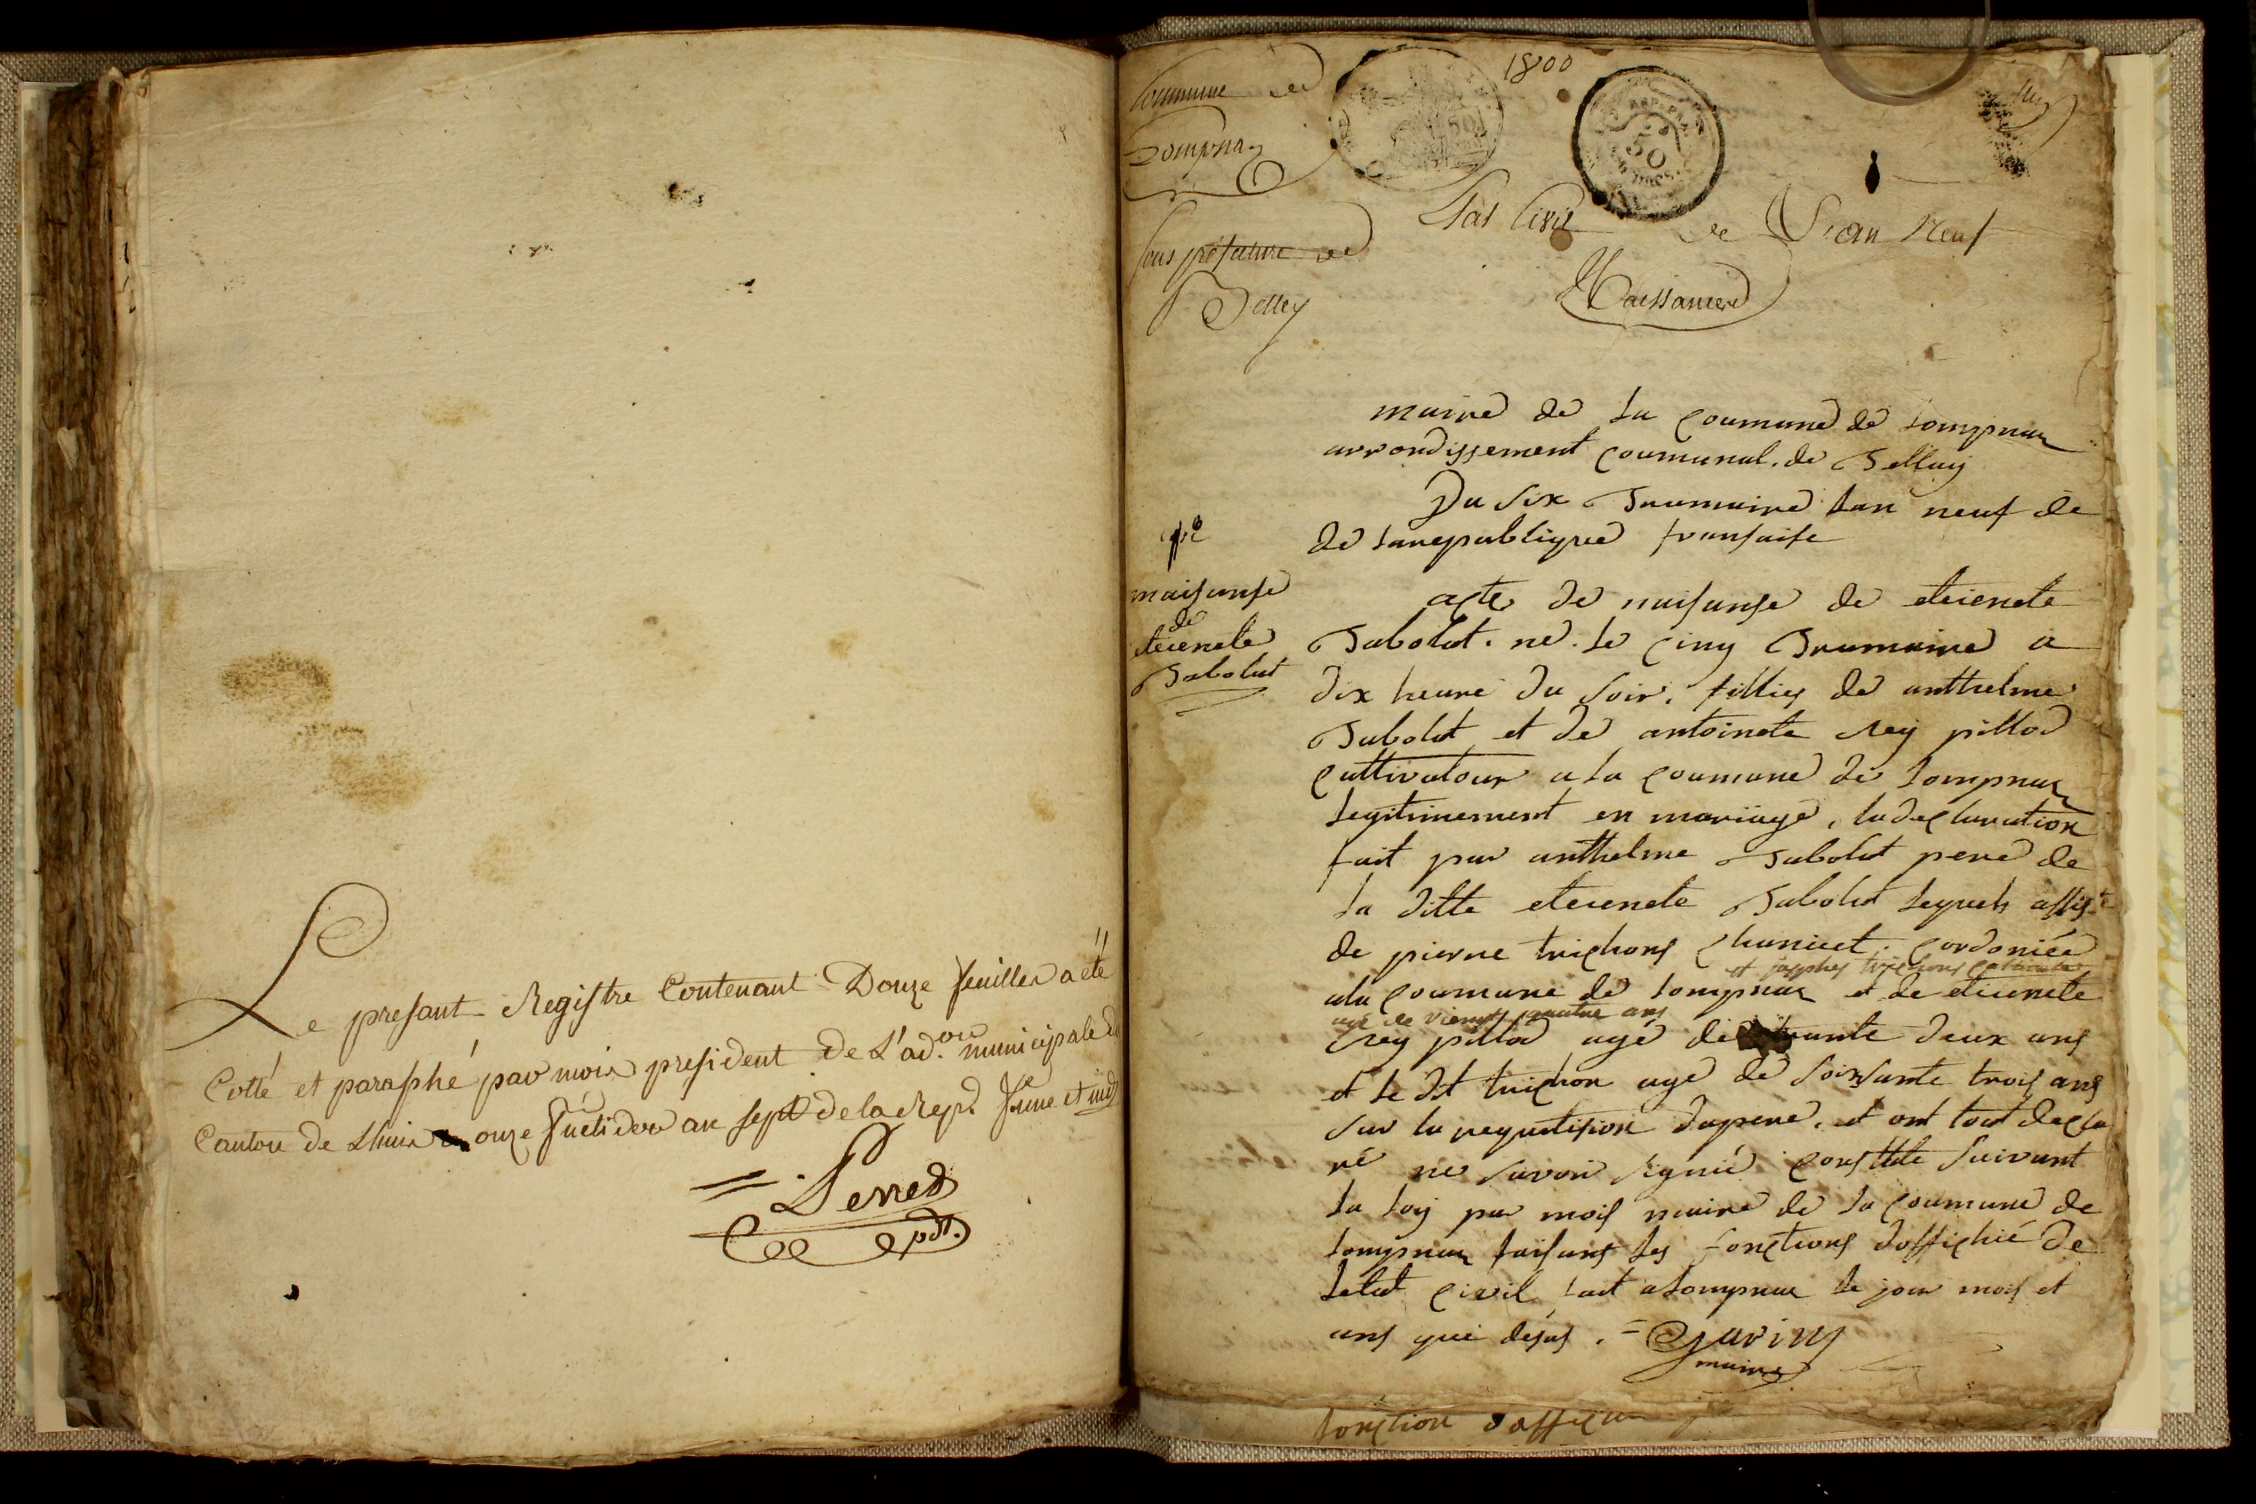 Le presant Registre Contenant Douze feuilles a été
Cotté et paraphé par mois president de L'ad.on municipale du
Canton de Lhuis onze fructidor an sept de la Rep. fse une et ind
= Perret
pdt.
1800
Commune de
Lompnas
REP. FRA.
50
Sous préfecture de
Belley
Etat Civil de L'an Neuf
Naissances
maire de la coumune de Lompnas
arrondissement coumunal. de Bellay
Du six Brumaire lan neuf de
de larepublique fransaise
naisanse
de
eteienete
Babolat
acte de naisanse de eteienete
Babolat. ne. le cinq Brumaire a
dix heure du soir. fillies de anthelme
Babolat et de antoinete rey pillod
cultivatour a la coumune de Lompnas
legitimement en mariage, la declaration
fait par anthelme Babolat pere de
la ditte eteienete Babolat lequels assis
de pierre trichons chaniet. cordoniée
et josephes trichons
ala coumune de Lompnas et de etienete
agé de viengts quatre ans
rey pillod agé de trante deux ans
et le dit trichon age de soixsante trois ans
sur la requitision dupere. et ont tout decla
ré ne savoir signié constte suivant
la loy par mois maire de la coumune de
Lompnas faisans les fonctions doffichié de
letat civil fait aLompnas le jour mois et
ans que désus. = Gavins
maire
fonction